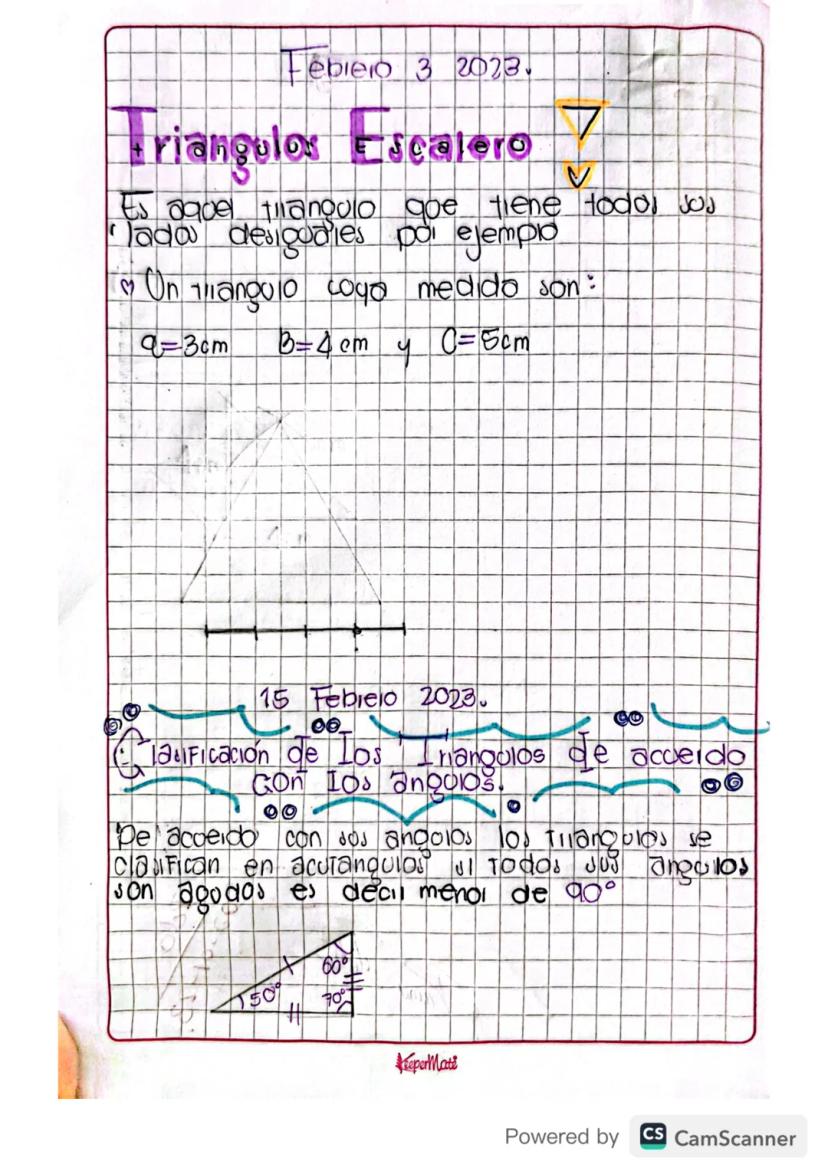 Febrero 3 2023.
Triangulos Escalero
Es aquel triangulo que tiene todos sus
lados desiguales por ejemplo
Un triangulo cuya medida son:
a=3cm B=4cm y C=5cm
15 Febrero 2023.
Clasificación de los Triangulos de acuerdo
con los ángulos.
De acuerdo con sus angulos los triangulos se
clasifican en acutangulos si todos sus angulos
son agudos es decir menor de 90°
60°
50°
70°
KeeperMate
Powered by CS CamScanner